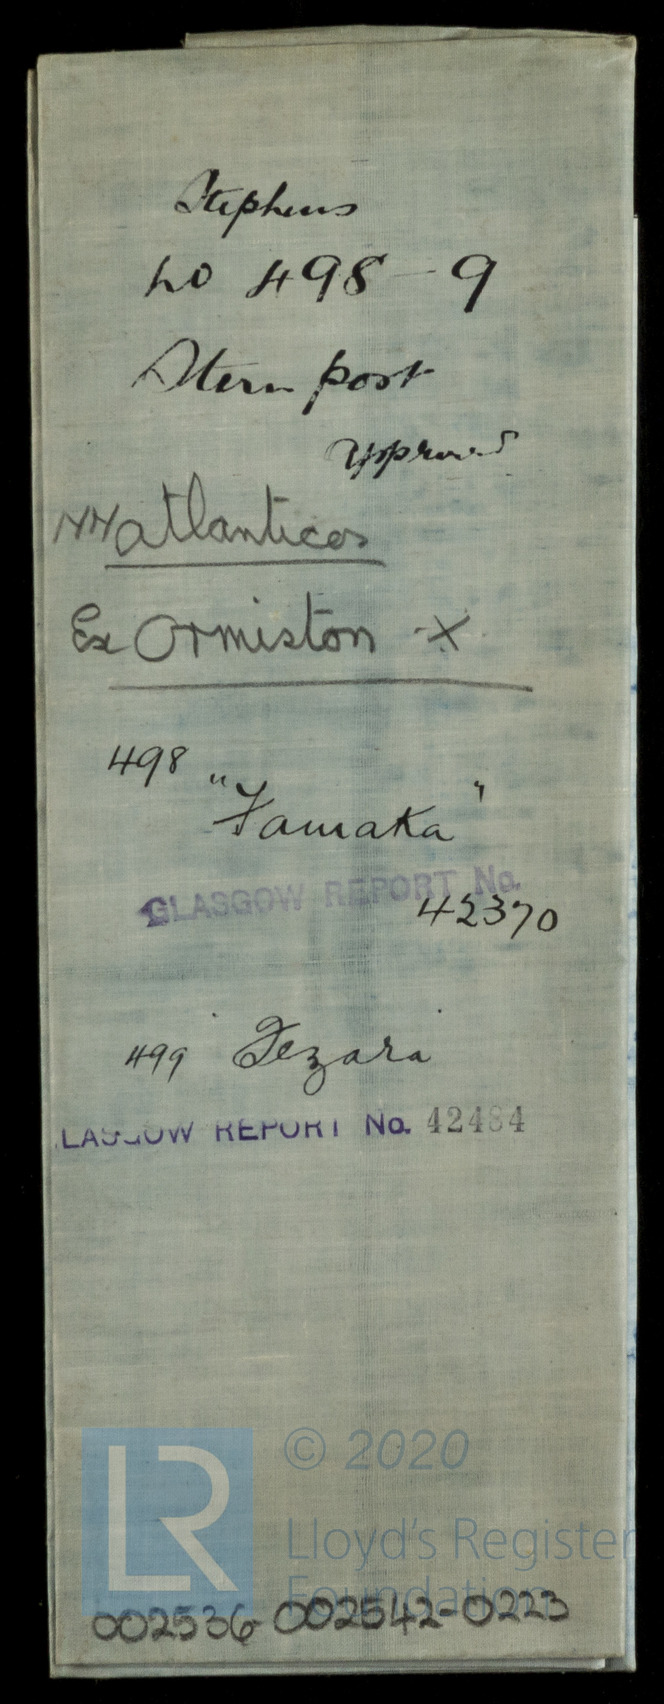 Stephens
No 498-9
Stern post
Approved
HH Atlanticos
Ex Ormiston X
498
"Tamaka"
GLASGOW REPORT No.
42370
499 Fezara
LASGOW REPORT No. 42484
© 2020
LR
Lloyd's Register
Foundation
002536-002542-0223